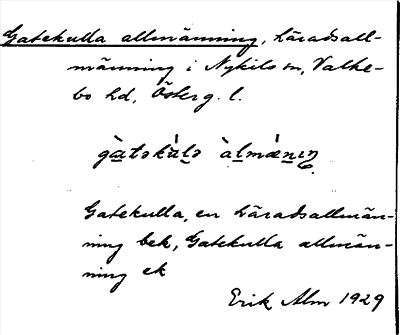 Gatekulla allmänning, häradsall-
männing i Nykils sn, Valke-
bo hd, Österg. l.
gàtəkùlə àlmǽnıŋ
Gatekulla, en häradsallmän-
ning bek, Gatekulla allmän-
ning ek
Erik Alm 1929